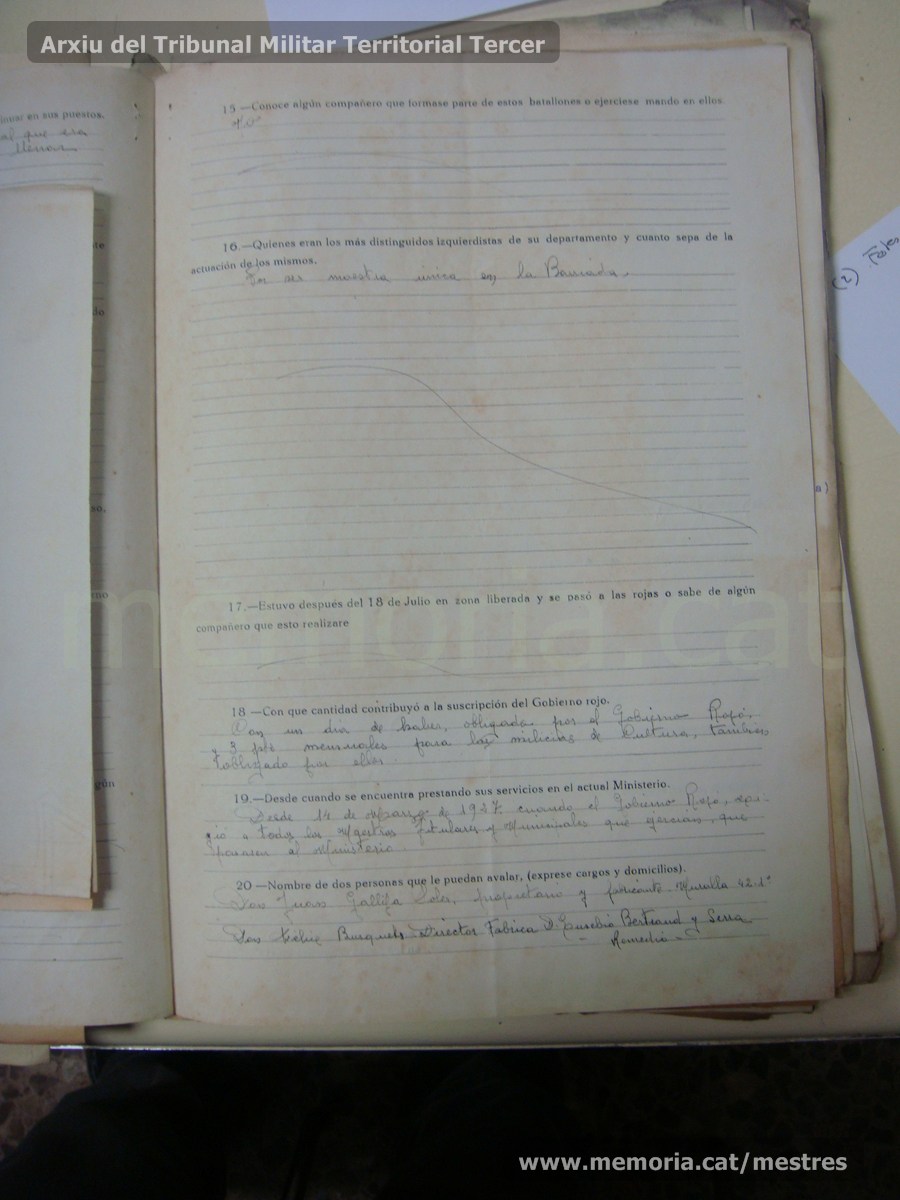 Arxiu del Tribunal Militar Territorial Tercer
nuar en sus puestos.
al que era
llenar
15.—Conoce algún compañero que formase parte de estos batallones o ejerciese mando en ellos.
No
16.—Quienes eran los más distinguidos izquierdistas de su departamento y cuanto sepa de la
actuación de los mismos.
Por ser maestra única en la Barriada.
(2)
17.—Estuvo después del 18 de Julio en zona liberada y se pasó a las rojas o sabe de algún
compañero que esto realizare
18 —Con que cantidad contribuyó a la suscripción del Gobierno rojo.
Con un dia de haber, obligada por el Gobierno Rojo,
y 3 pts mensuales para las milicias de Cultura, tambien
obligado por ellos.
19.—Desde cuando se encuentra prestando sus servicios en el actual Ministerio.
Desde 14 de Marzo de 1937 cuando el Gobierno Rojo,
a todos los Maestros titulares y Municipales que ejercian, que
pasasen al Ministerio.
20 —Nombre de dos personas que le puedan avalar, (exprese cargos y domicilios).
Don Juan Gallifa Soler, propietario y fabricante Muralla 42-1º
Don Busquets Director Fábrica D. Eusebio Bertrand y Serra
Remedio
memoria.cat
www.memoria.cat/mestres